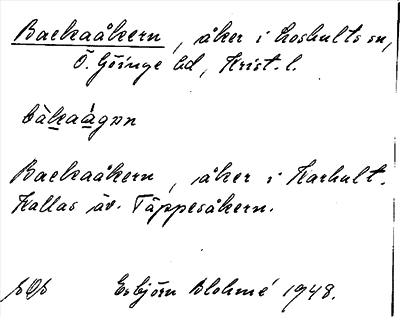 Backaåkern, åker i Loshults sn,
Ö. Göinge hd, Krist. l.
bàkaágən
Backaåkern, åker i Karhult.
Kallas äv. Täppesåkern.
Esbjörn Blohmé 1948.